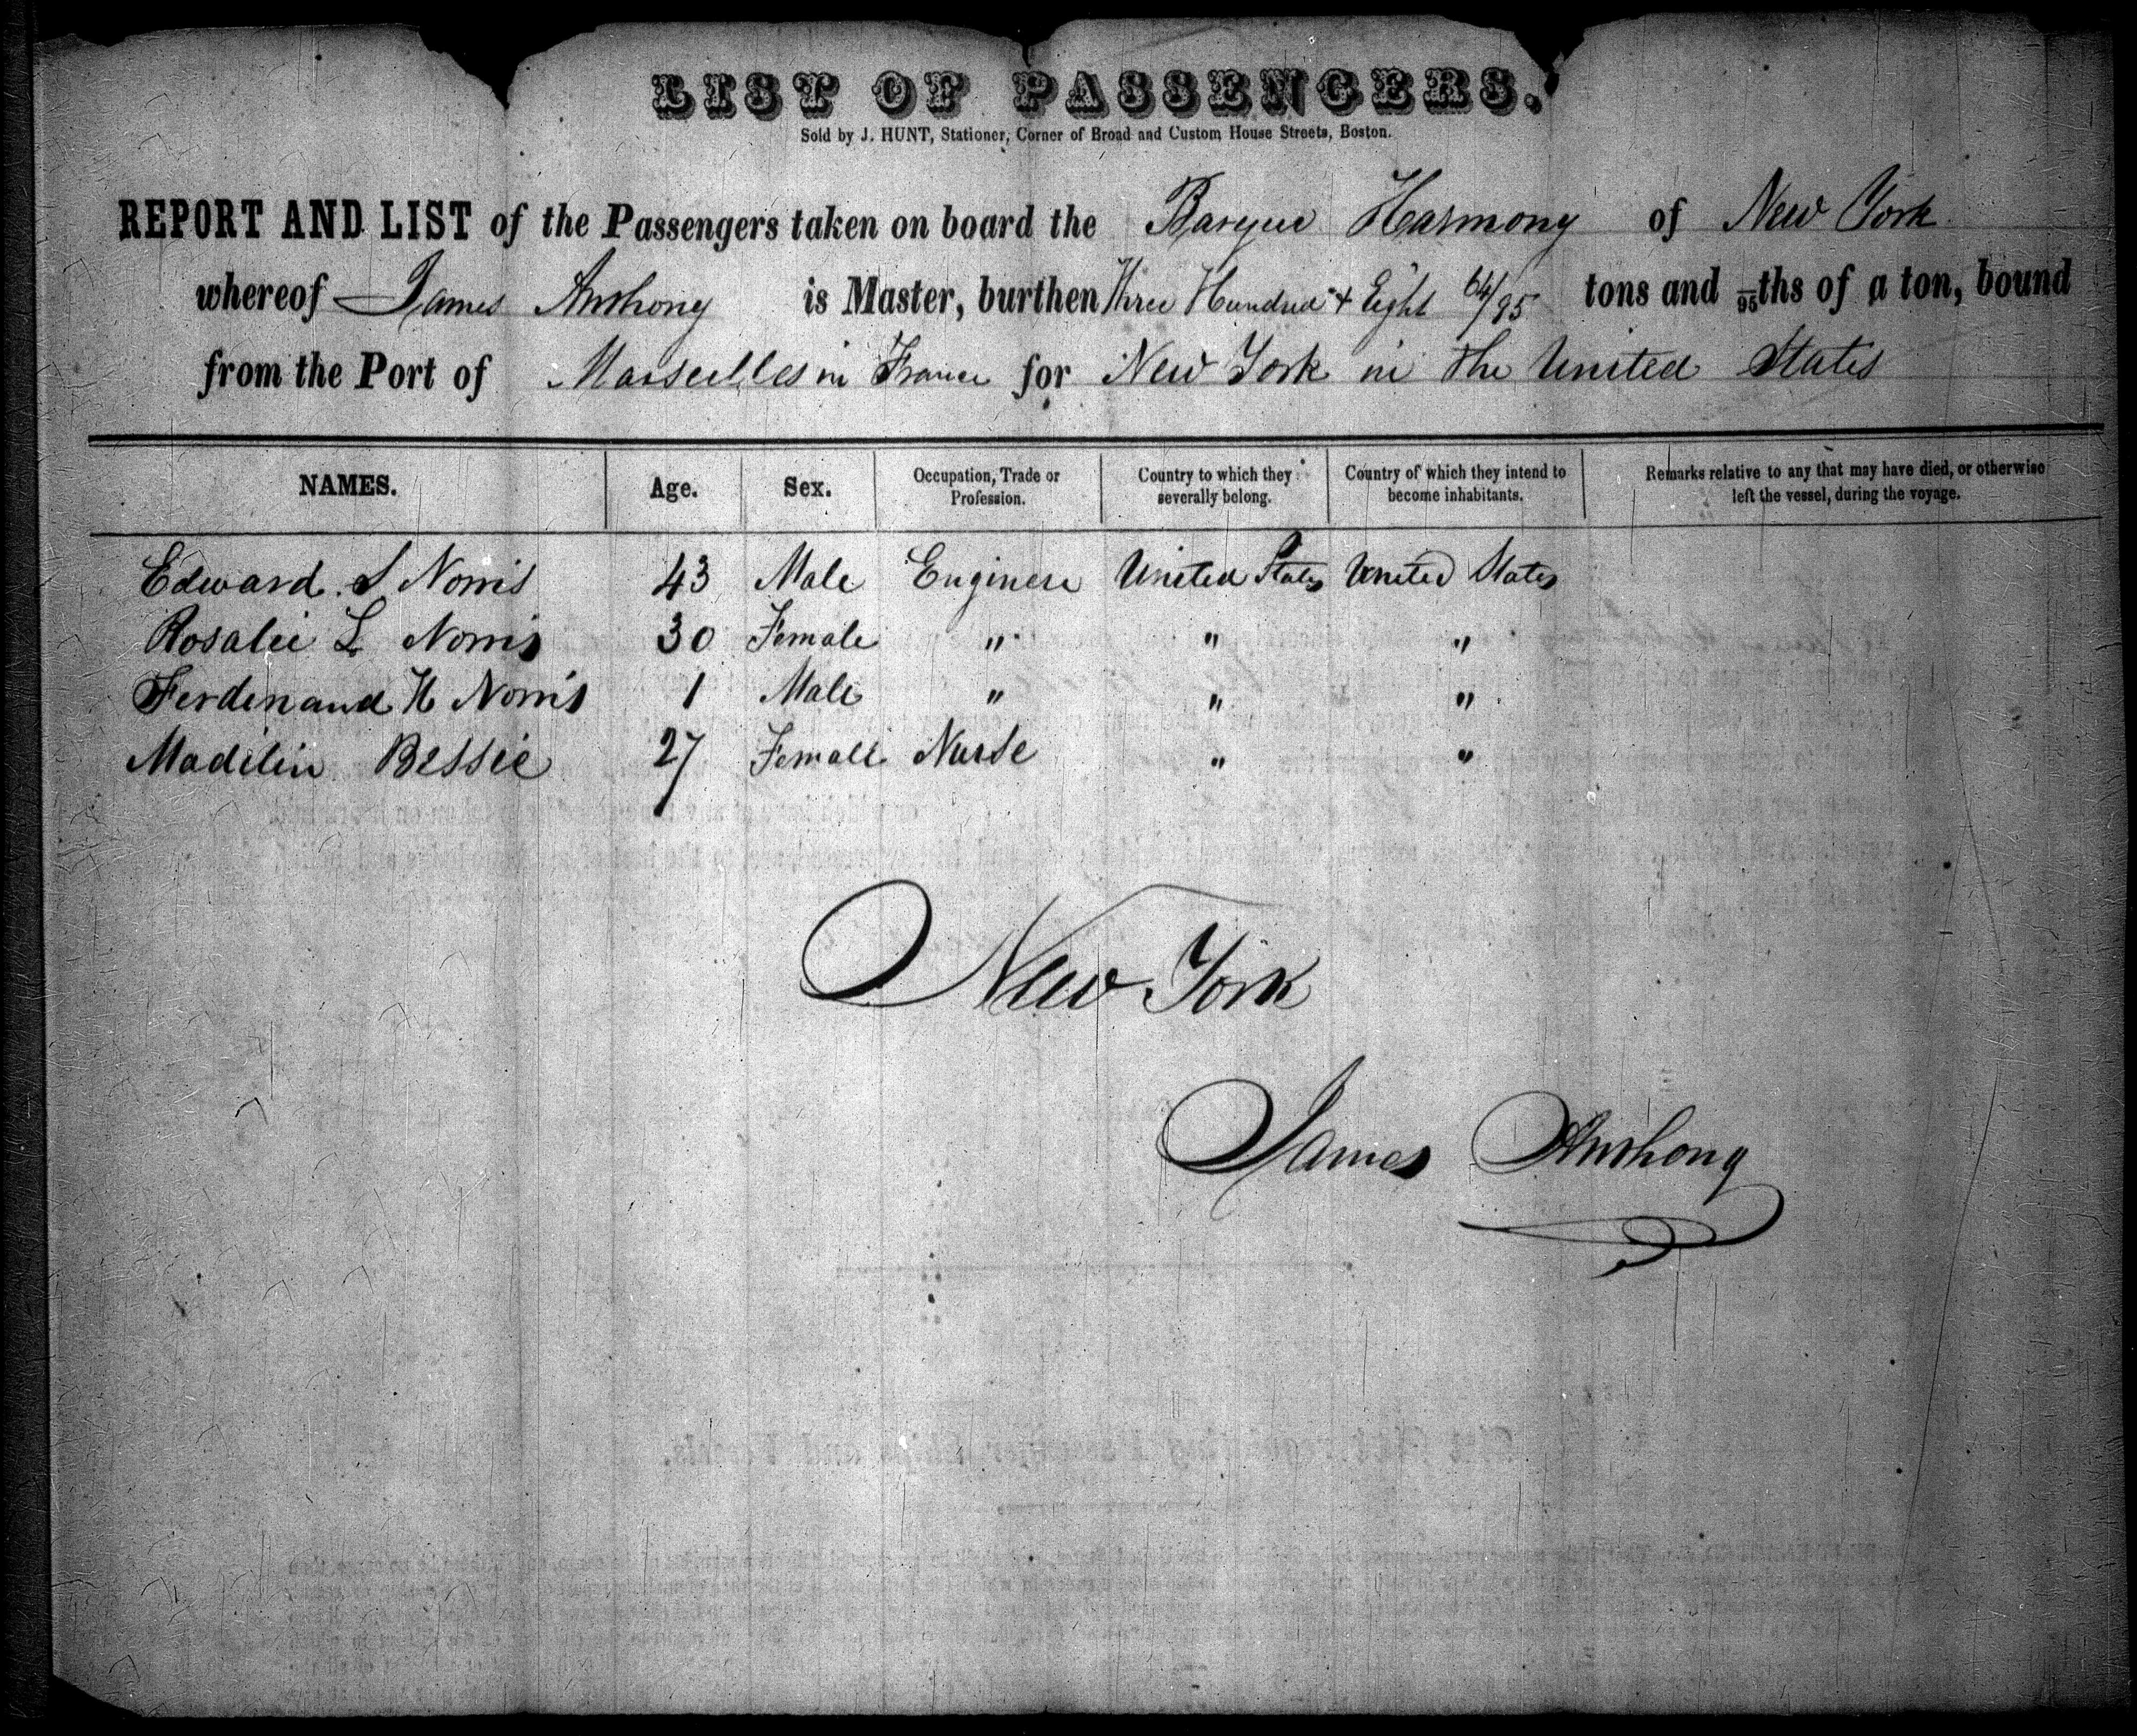 LIST OF PASSENGERS.
Sold by J. HUNT, Stationer, Corner of Broad and Custom House Streets, Boston.
REPORT AND LIST of the Passengers taken on board the Barque Harmony of New York
whereof James Anthony is Master, burthen Three Hundred + Eight 64/95 tons and /95ths of a ton, bound
from the Port of Marseilles in France for New York in the United States
NAMES. Age. Sex. Occupation, Trade or Profession. Country to which they severally belong. Country of which they intend to become inhabitants. Remarks relative to any that may have died, or otherwise left the vessel, during the voyage.
Edward S Norris 43 Male Engineer United States United States
Rosalie L Norris 30 Female " " "
Ferdinand H Norris 1 Male " " "
Madilin Bessie 27 Female Nurse " "
New York
James Anthony